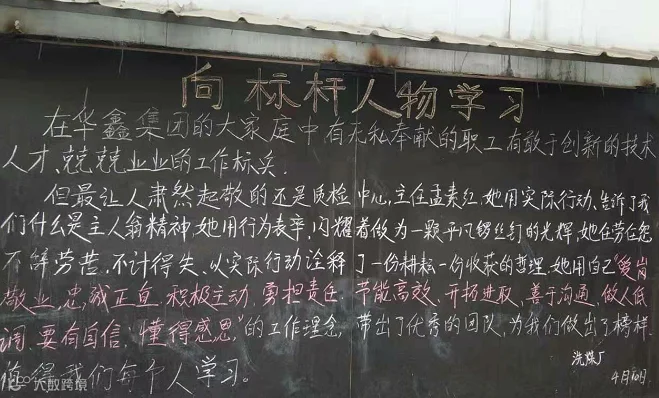 向标杆人物学习
在华鑫集团的大家庭中有无私奉献的职工有敢于创新的技术
人才、兢兢业业的工作标兵.
但最让人肃然起敬的还是质检中心,主任孟素红.她用实际行动,告诉了我
们什么是主人翁精神,她用行为表率,闪耀着做为一颗平凡螺丝钉的光辉,她任劳任怨
不辞劳苦,不计得失、以实际行动诠释了一份耕耘一份收获的哲理.她用自己“爱岗
敬业,忠诚正直,积极主动,勇担责任,节能高效,开拓进取,善于沟通,做人低
调,要有自信,懂得感恩”的工作理念,带出了优秀的团队,为我们做出了榜样.
值得我们每个人学习。
洗煤厂
4月10日
大数跨境